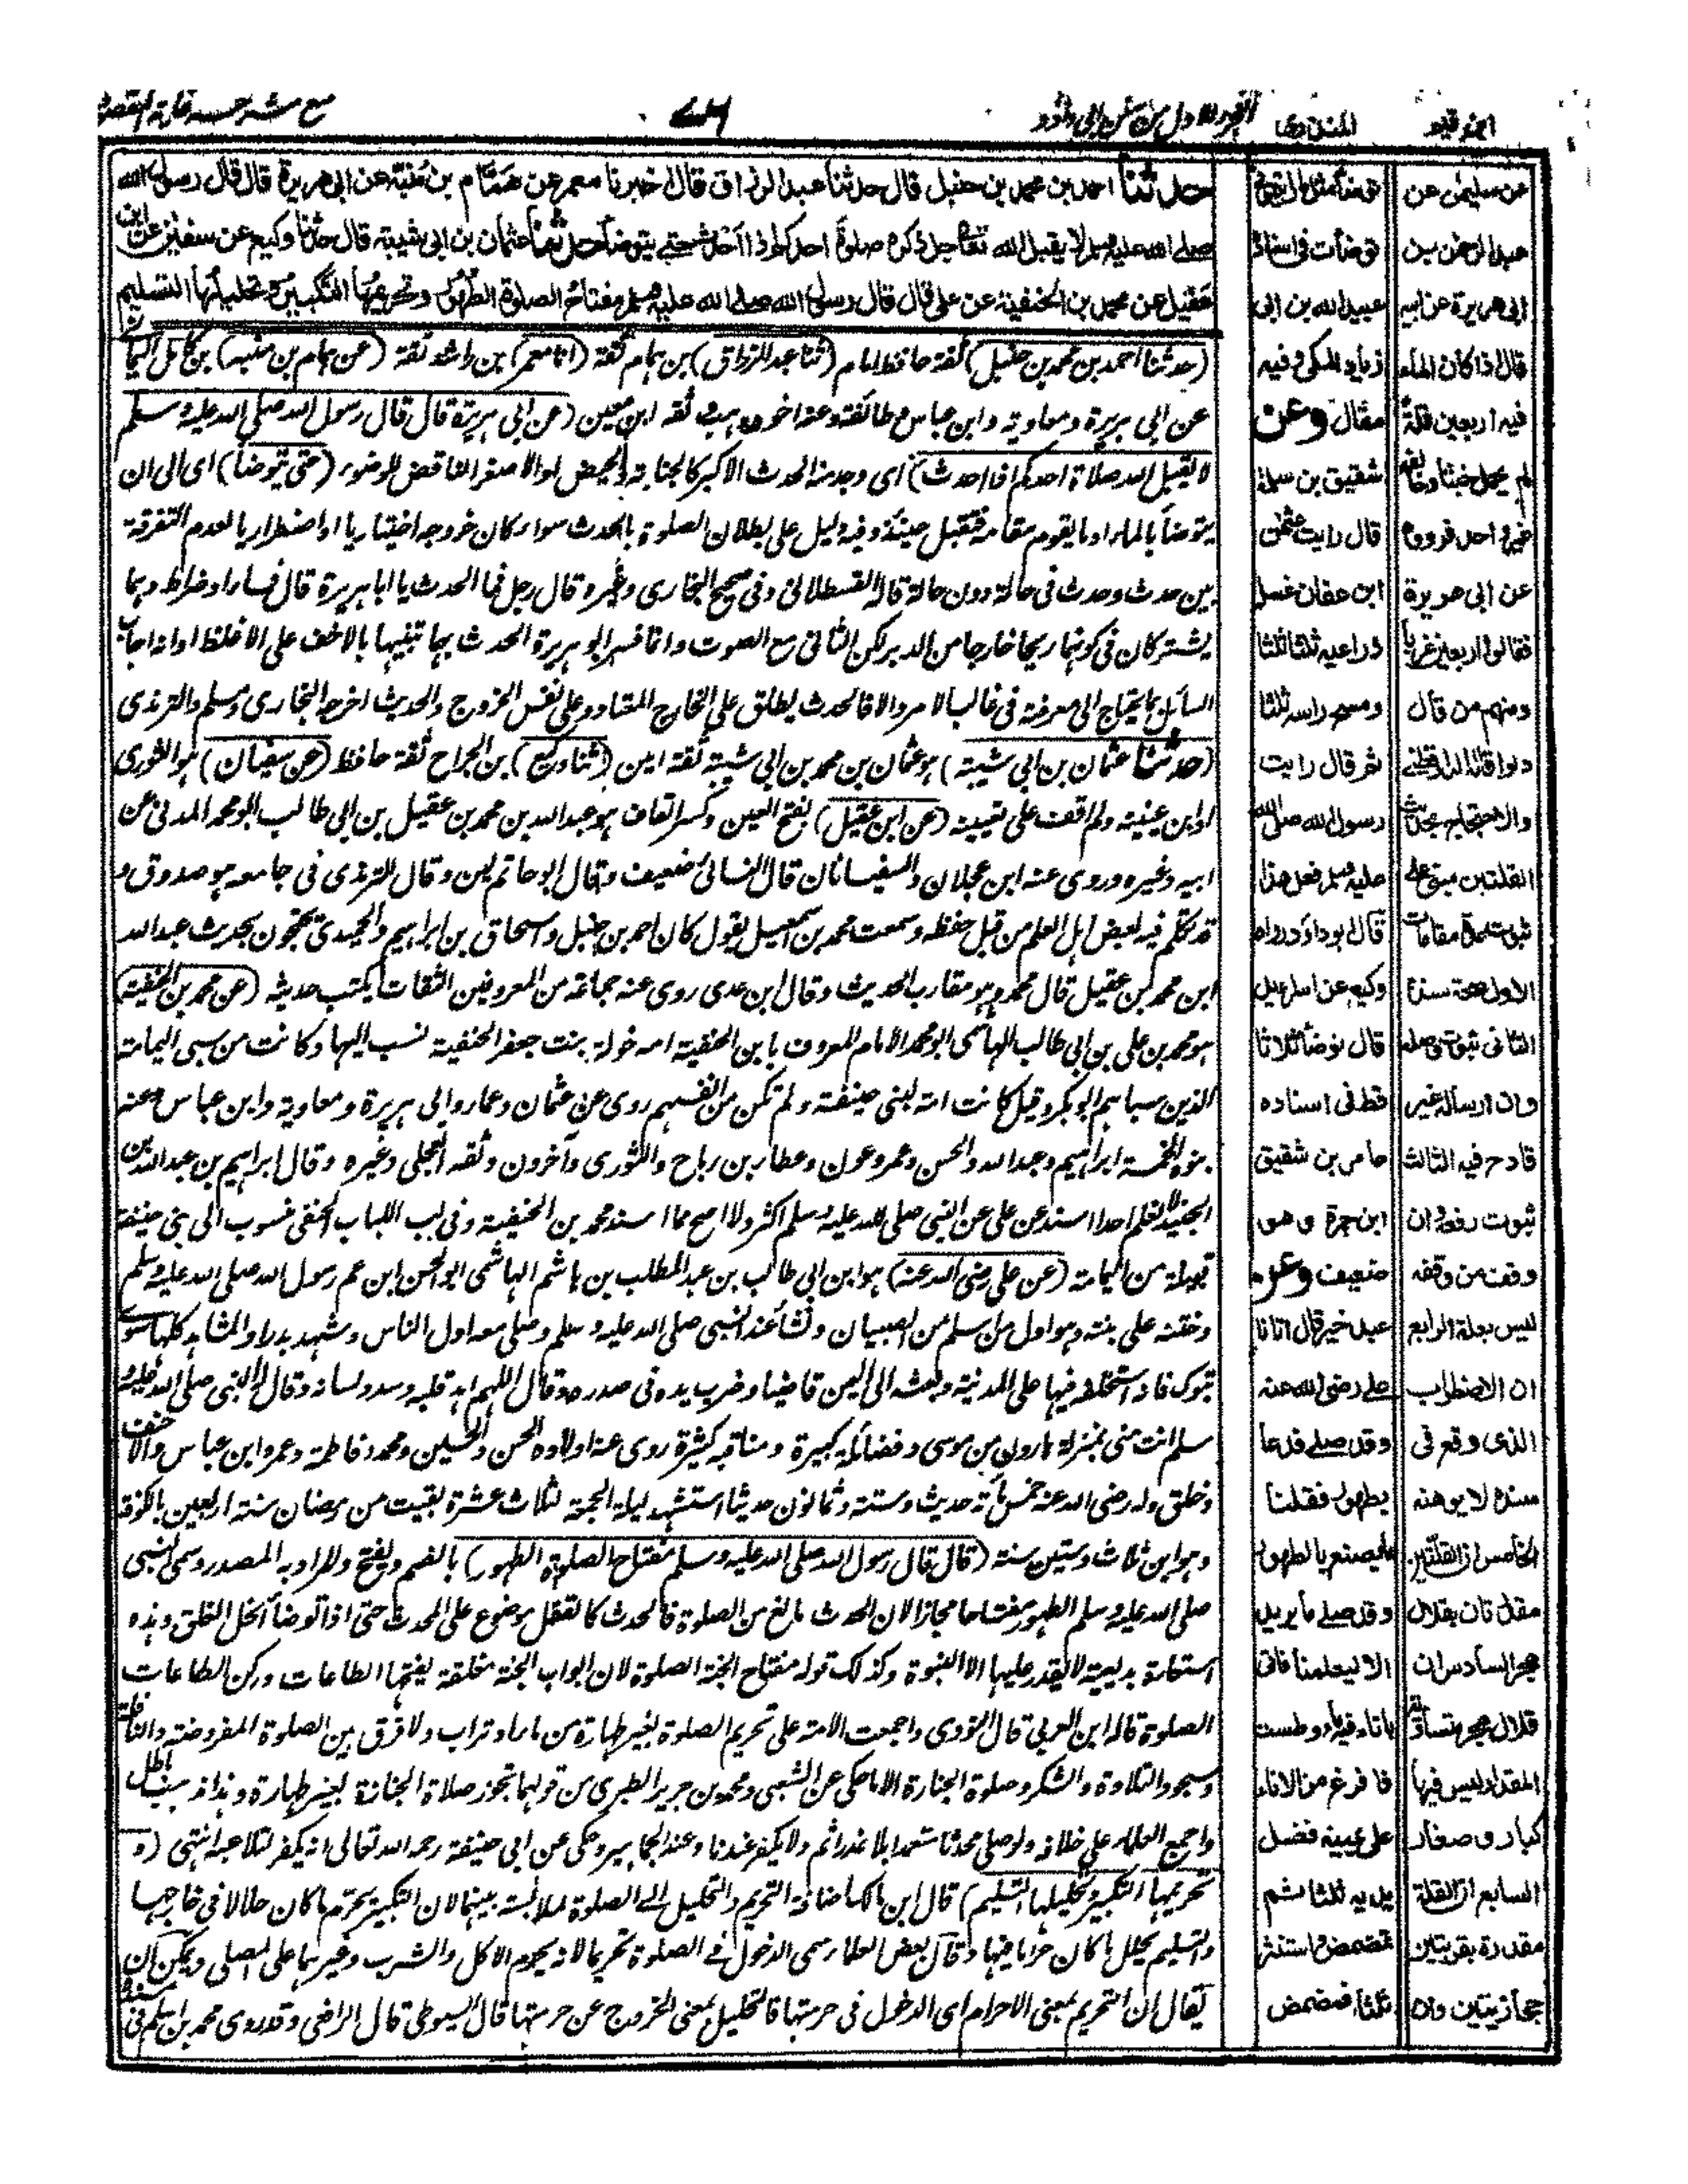 ابن قيم
المنذري
الجزء الاول من سنن ابي داؤد
مع شرحه غاية المقصود
حدثنا احمد بن محمد بن حنبل قال حدثنا عبد الرزاق قال اخبرنا معمر عن همام بن منبه عن ابي هريرة قال قال رسول الله
صلى الله عليه وسلم لا يقبل الله تعالى جل ذكره صلوة احدكم اذا احدث حتى يتوضأ حدثنا عثمان بن ابي شيبة قال حدثنا وكيع عن سفين عن ابن
عقيل عن محمد بن الحنفية عن علي قال قال رسول الله صلى الله عليه وسلم مفتاح الصلوة الطهور وتحريمها التكبير وتحليلها التسليم
(حدثنا احمد بن محمد بن حنبل) ثقة حافظ امام (ثنا عبد الرزاق) بن همام ثقة (انا معمر) بن راشد ثقة (عن همام بن منبه) بن كامل اليماني
عن ابي هريرة ومعاوية وابن عباس وطائفة وعنه اخوه وهب وثقه ابن معين (عن ابي هريرة قال قال رسول الله صلى الله عليه وسلم
لا يقبل الله صلاة احدكم اذا احدث) اى وجد منه الحدث الاكبر كالجنابة والحيض او الاصغر الناقض للوضوء (حتى يتوضأ) اى الى ان
يتوضأ بالماء او ما يقوم مقامه فتقبل حينئذ وفيه دليل على بطلان الصلوة بالحدث سواء كان خروجه اختياريا او اضطراريا لعدم التفرقة
بين حدث وحدث في حالة دون حالة قاله القسطلاني وفي صحيح البخاري وغيره قال رجل فما الحدث يا ابا هريرة قال فساء او ضراط وهما
يشتركان في كونهما ريحا خارجا من الدبر لكن الثاني مع الصوت وانما فسر ابو هريرة الحدث بهما تنبيها بالاخف على الاغلظ او انه اجاب
السائل بما يحتاج الى معرفته في غالب الامر والا فالحدث يطلق على الخارج المعتاد وعلى نفس الخروج والحديث اخرجه البخاري ومسلم والترمذي
(حدثنا عثمان بن ابي شيبة) هو عثمان بن محمد بن ابي شيبة ثقة امين (ثنا وكيع) بن الجراح ثقة حافظ (عن سفيان) هو الثوري
او ابن عيينة ولم اقف على تعيينه (عن ابن عقيل) بفتح العين وكسر القاف هو عبد الله بن محمد بن عقيل بن ابي طالب ابو محمد المدني عن
ابيه وغيره وروى عنه ابن عجلان والسفيانان قال النسائي ضعيف وقال ابو حاتم لين وقال الترمذي في جامعه هو صدوق و
قد تكلم فيه بعض اهل العلم من قبل حفظه وسمعت محمد بن اسمعيل يقول كان احمد بن حنبل واسحاق بن ابراهيم والحميدي يحتجون بحديث عبد الله
ابن محمد بن عقيل قال محمد وهو مقارب الحديث وقال ابن عدي روى عنه جماعة من المعروفين الثقات يكتب حديثه (عن محمد بن الحنفية)
هو محمد بن علي بن ابي طالب الهاشمي ابو محمد الامام المعروف بابن الحنفية امه خولة بنت جعفر الحنفية نسب اليها وكانت من سبي اليمامة
الذين سباهم ابو بكر وقيل كانت امة لبني حنيفة ولم تكن من انفسهم روى عن عثمان وعمار وابي هريرة ومعاوية وابن عباس وعنه
بنوه الخمسة ابراهيم وعبد الله والحسن وعمرو وعون وعطاء بن رباح والثوري وآخرون وثقه العجلي وغيره وقال ابراهيم بن عبد الله بن
الجنيد لا نعلم احدا اسند عن علي عن النبي صلى الله عليه وسلم اكثر ولا اصح مما اسند محمد بن الحنيفية وفي لب اللباب الحنفي منسوب الى بني حنيفة
قبيلة من اليمامة (عن علي رضي الله عنه) هو ابن ابي طالب بن عبد المطلب بن هاشم الهاشمي ابو الحسن ابن عم رسول الله صلى الله عليه وسلم
وختنه على بنته وهو اول من اسلم من الصبيان ونشأ عند النبي صلى الله عليه وسلم وصلى معه اول الناس وشهد بدرا والمشاهد كلها سوى
تبوك فانه استخلفه فيها على المدينة وبعثه الى اليمن قاضيا وضرب يده في صدره وقال اللهم اهد قلبه وسدد لسانه وقال له النبي صلى الله عليه و
سلم انت مني بمنزلة هارون من موسى وفضائله كبيرة ومناقبه كثيرة روى عنه اولاده الحسن والحسين ومحمد وفاطمة وعمر وابن عباس والاحنف
وخلق وله رضي الله عنه خمس مأته حديث وستة وثمانون حديثا استشهد ليلة الجمعة لثلاث عشرة بقيت من رمضان سنة اربعين بالكوفة
وهو ابن ثلاث وستين سنة (قال قال رسول الله صلى الله عليه وسلم مفتاح الصلوة الطهور) بالضم ويفتح والمراد به المصدر وسمى النبي
صلى الله عليه وسلم الطهور مفتاحا مجازا لان الحدث مانع من الصلوة فالحدث كالقفل موضوع على المحدث حتى اذا توضأ انحل الغلق وهذه
استعارة بديعية لا يقدر عليها الا النبوة وكذلك قوله مفتاح الجنة الصلوة لان ابواب الجنة مغلقة يفتحها الطاعات وركن الطاعات
الصلوة قاله ابن العربي قال النووي واجمعت الامة على تحريم الصلوة بغير طهارة من ماء او تراب ولا فرق بين الصلوة المفروضة والنافلة
وسجود التلاوة والشكر وصلوة الجنازة الا ما حكي عن الشعبي ومحمد بن جرير الطبري من قولهما تجوز صلاة الجنازة بغير طهارة وهذا مذهب باطل
واجمع العلماء على خلافه ولو صلى محدثا متعمدا بلا عذر اثم ولا يكفر عندنا وعند الجماهير وحكي عن ابي حنيفة رحمه الله تعالى انه يكفر لتلاعبه انتهى (و
تحريمها التكبير وتحليلها التسليم) قال ابن مالك اضافة التحريم والتحليل الى الصلوة لملابسة بينهما لان التكبير يحرم ما كان حلالا في خارجها
والتسليم يحلل ما كان حراما فيها وقال بعض العلماء سمى الدخول في الصلوة تحريما لانه يحرم الاكل والشرب وغيرهما على المصلي ويمكن ان
يقال ان التحريم بمعنى الاحرام اى الدخول في حرمتها فالتحليل بمعنى الخروج عن حرمتها قال السيوطي قال الرافعي وقد روى محمد بن اسلم في مسنده
توضأ مثل
توضأت في اسناده
عبيد الله بن ابي
زياد المكي وفيه
مقال وعن
شقيق بن سلمة
قال رايت عثمن
ابن عفان غسل
ذراعيه ثلثا ثلثا
ومسح راسه ثلثا
ثم قال رايت
رسول الله صلى الله
عليه وسلم فعل هذا
قال ابو داؤد رواه
وكيع عن اسرائيل
قال توضأ ثلاثا
قط في اسناده
عامر بن شقيق
ابن جمرة وهو
ضعيف وعن
عبد خير قال اتانا
علي رضي الله عنه
وقد صلى فدعا
بطهور فقلنا
ما يصنع بالطهور
وقد صلى ما يريد
الا ليعلمنا فاتي
باناء فيه ماء وطست
فافرغ من الاناء
على يمينه فغسل
يديه ثلثا ثم
تمضمض واستنثر
ثلثا فمضمض
عن سليمن عن
عبد الرحمن بن
ابي هريرة عن ابيه
قال اذا كان الماء
فيه اربعين قلة
لم يحمل خبثا وخالفه
غير احد فرووه
عن ابي هريرة
فقالوا اربعين غربا
ومنهم من قال
دلوا قاله الدارقطني
والاحتجاج بحديث
القلتين مبني على
ثبوت عدة مقامات
الاول صحة سنده
الثاني ثبوت وصله
وان ارساله غير
قادح فيه الثالث
ثبوت رفعه وان
وقف من وقفه
ليس بعلة الرابع
ان الاضطراب
الذى وقع في
سنده لا يوهنه
الخامس ان القلتين
مقدرتان بقلال
هجر السادس ان
قلال هجر متساوية
المقدار ليس فيها
كبار وصغار
السابع ان القلة
مقدرة بقربتين
حجازيتين وان